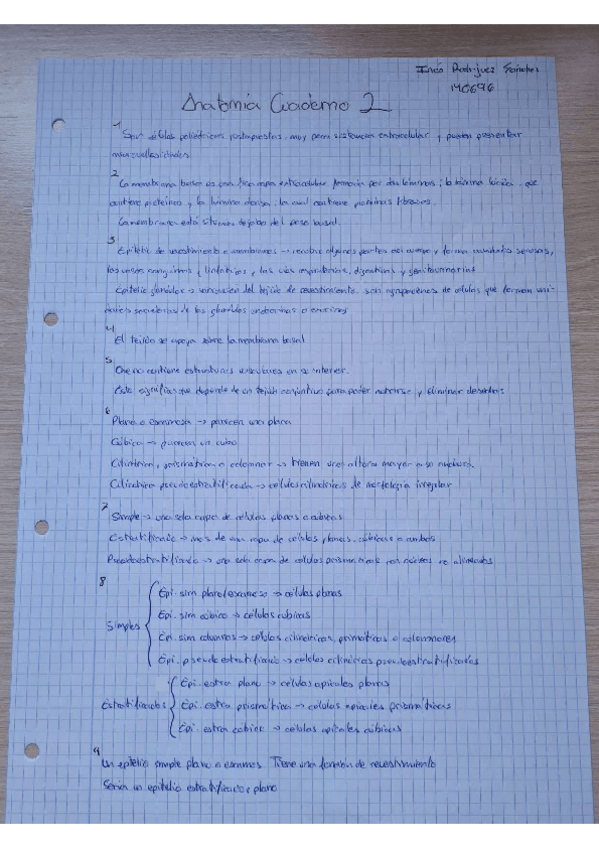 Rodriguez Sánchez
MC696
Anatomía Cuaderno 2
1
Son células poliédricas yuxtapuestas, muy poca sustancia extracelular y pueden presentar
2
La membrana basal es una fina capa extracelular formada por dos láminas; la lámina lúcida, que
contiene proteínas y la lámina densa, la cual contiene proteínas fibrosas.
La membrana está situada debajo del
3
Epitelio de revestimiento o membranoso → recubre algunas partes del cuerpo y forma serosas,
los vasos sanguíneos y linfáticos y las vías respiratorias, digestivas y genitourinarias
Epitelio glandular → variación del tejido de revestimiento. son agrupaciones de células que forman uni-
dades secretoras de las glándulas endocrinas o exocrinas
4
El tejido se apoya sobre la membrana basal
5
Que no contiene estructuras vasculares en su interior.
Esto significa que depende de un tejido conjuntivo para poder nutrirse y eliminar desechos
6
Plana o escamosa → parecen una plana
Cúbica → parecen un cubo
Cilíndrica, prismática o columnar → tienen una altura mayor a su anchura.
Cilíndrica pseudoestratificada → células cilíndricas de morfología irregular
7
Simple → una sola capa de células planas o cúbicas
Estratificado → mas de una capa de células planas, cúbicas o ambas
Pseudoestratificado → una sola capa de células prismáticas con núcleos no alineados
8
Simples
Epi. sim plano/escamoso → células planas
Epi. sim cúbico → células cúbicas
Epi. sim columnar → células cilíndricas, prismáticas o columnares
Epi. pseudoestratificado → células cilíndricas pseudoestratificadas
Estratificados
Epi. estra plano → células apicales planas
Epi. estra prismático → células apicales prismáticas
Epi. estra cúbico → células apicales cúbicas
9
Un epitelio simple plano o escamoso Tiene una función de revestimiento
Sería un epitelio estratificado plano